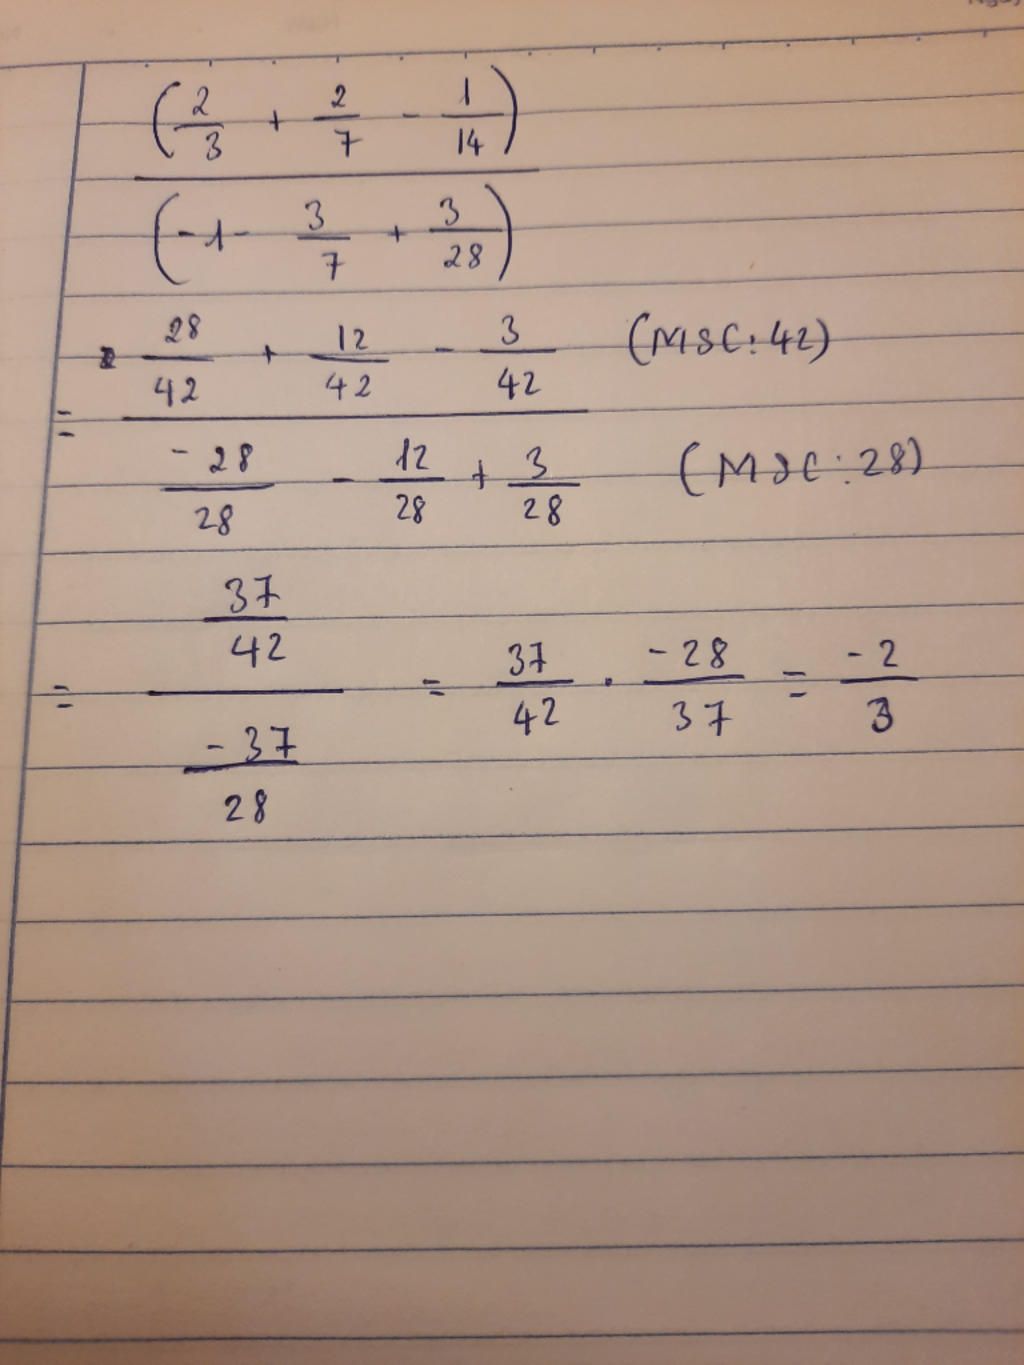 (2/3 + 2/7 - 1/14)
(-1 - 3/7 + 3/28)
= 28/42 + 12/42 - 3/42 (MSC: 42)
-28/28 - 12/28 + 3/28 (MSC: 28)
= 37/42 / -37/28 = 37/42 . -28/37 = -2/3